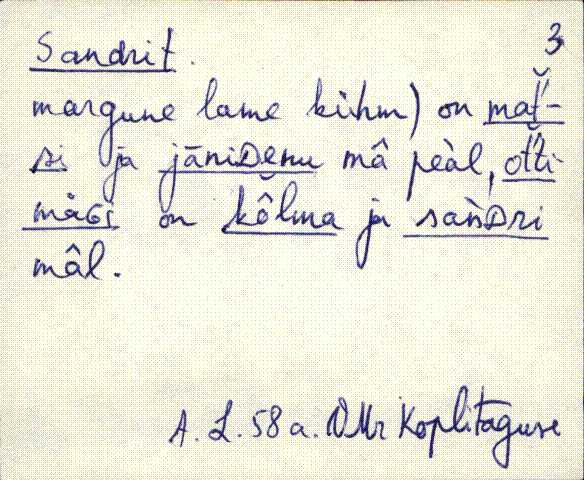 Sandrit. 3
margune lame kühm) on mať-
si ja jāniDenu mâ peàl, oťťi
mäGi on kôlma ja sàǹDri
mâl.
A. L. 58 a. VMr Koplitaguse